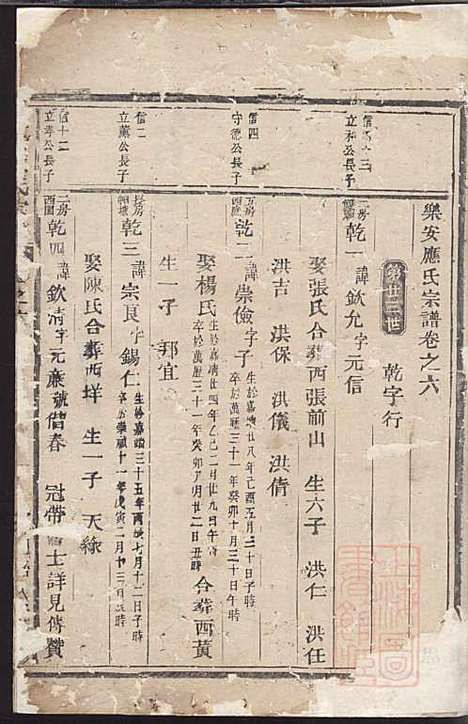 樂安應氏宗譜卷之六
第廿二世 乾字行
立和公長子
二房 乾一 諱欽允字元信
娶張氏合葬西張前山 生六子 洪仁 洪任
洪吉 洪保 洪儀 洪倩
信四
守德公長子
乾二 諱崇儉字子 生於嘉靖廿八年己酉五月三十日子時
卒於萬曆三十一年癸卯十月三十日午時
娶楊氏 生於嘉靖廿四年乙巳二月廿九日午時
卒於萬曆三十一年癸卯八月廿二日丑時 合葬西黃
生一子 邦宜
信二
立薰公長子
長房 乾三 諱宗良字錫仁 生於嘉靖三十五年丙辰七月十二日子時
卒於崇禎十一年戊寅二月廿三日
娶陳氏合葬西垟 生一子 天祿
信十二
立孝公長子
二房 乾四 諱欽清字元廉號偕春 冠帶 士詳見傳贊